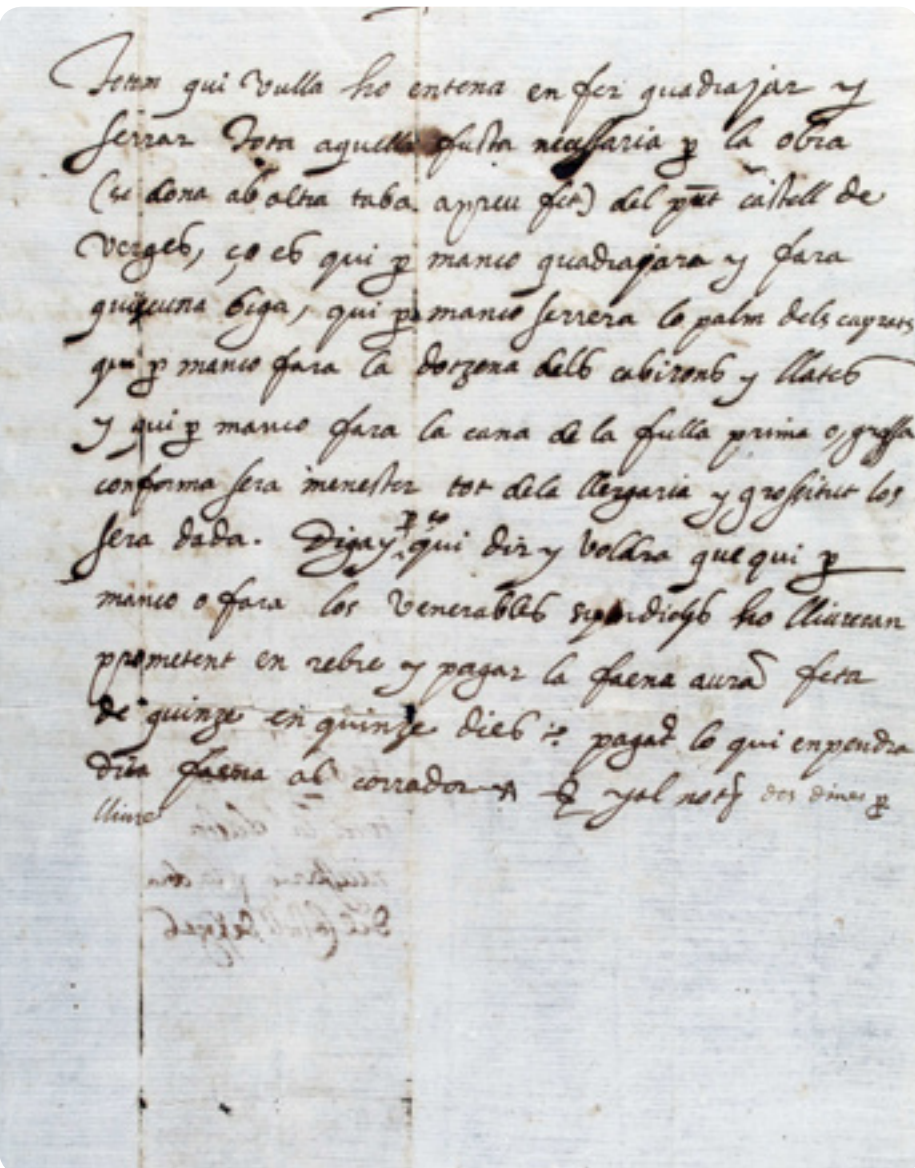 Ittem qui vulla ho entena en fer quadrajar y
serrar tota aquella fusta necessaria p la obra
(se dona ab altra taba apreu fet) del pnt castell de
Verges, ço es qui p manco quadrajara y fara
quiscuna biga, qui p manco serrera lo palm dels
qui p manco fara la dotzena dells cabirons y llates
y qui p manco fara la cana de la fulla prima o, grossa
conforma sera menester tot dela llergaria y grossitut los
sera dada. Diga y qui dir y voldra que qui p
manco o fara los venerables syndichs ho lliureran
prometent en rebre y pagar la faena aura feta
de quinze en quinze dies pagat lo qui enpendra
dita faena al corrador y al not dos dines p
lliura